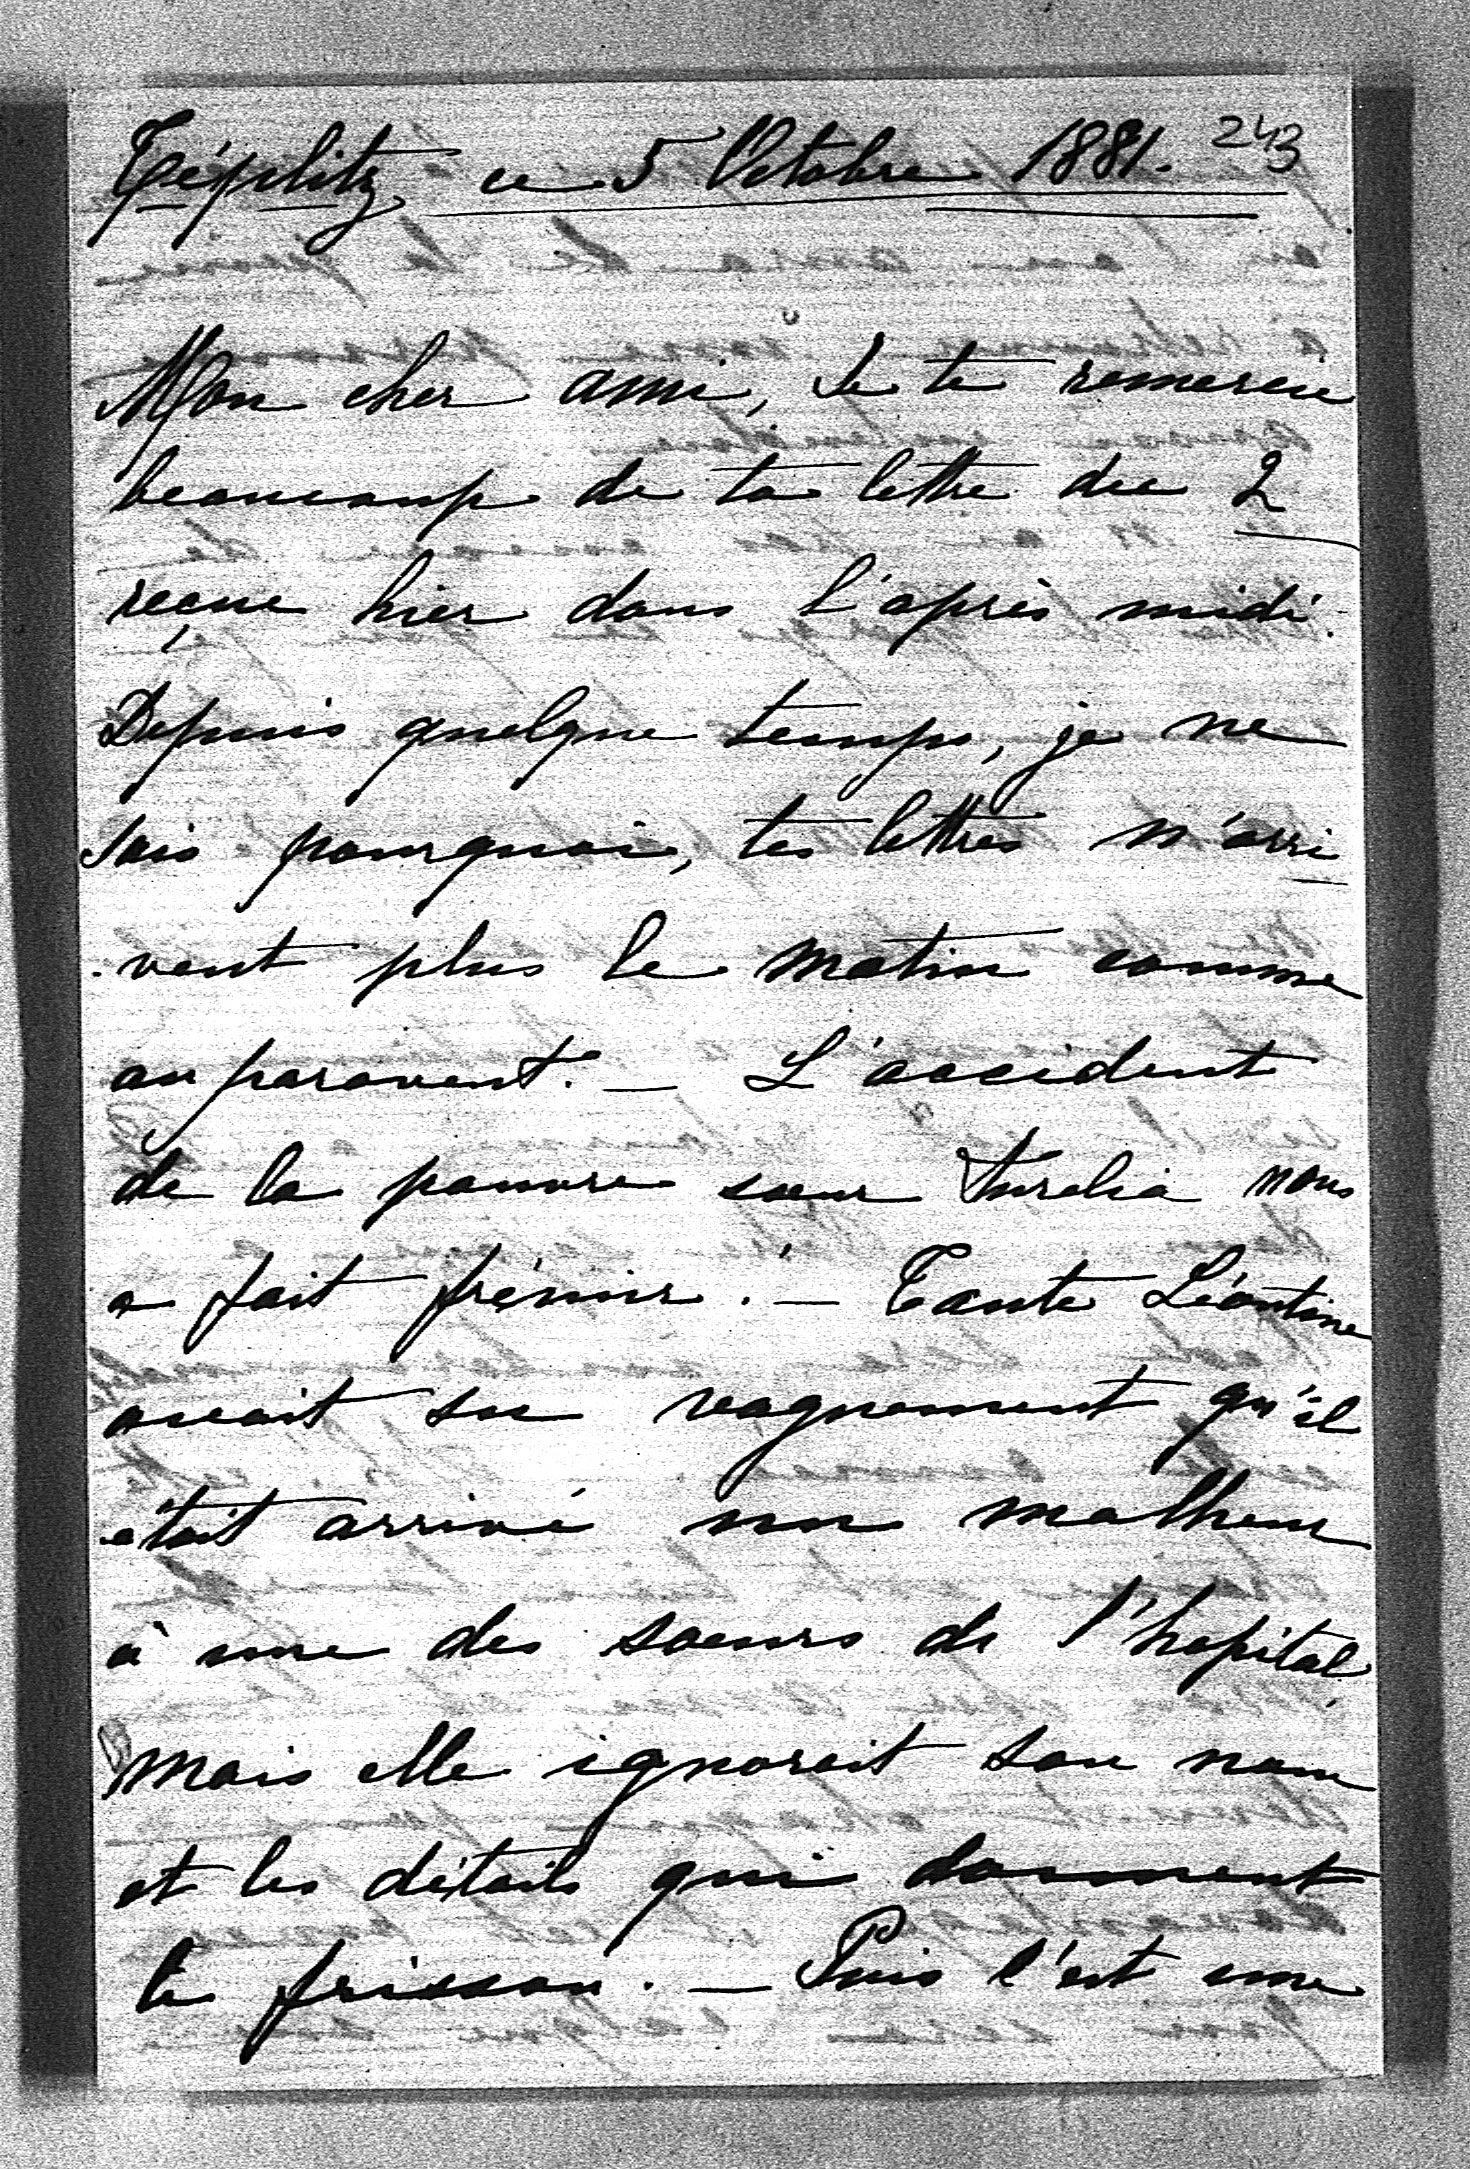 Téplitz ce 5 Octobre 1881. 243
Mon cher ami, Je te remercie
beaucoup de ta lettre du 2
reçue hier dans l'après midi.
Depuis quelque temps, je ne
sais pourquoi, tes lettres n'arri
-vent plus le matin comme
auparavant. — L'accident
de la pauvre soeur Aurelia nous
a fait frémir. — Tante Léontine
avait su vaguement qu'il
était arrivé un malheur
à une des soeurs de l'hopital,
mais elle ignorait son nom
et les détails qui donnent
le frisson. — Puis c'est une